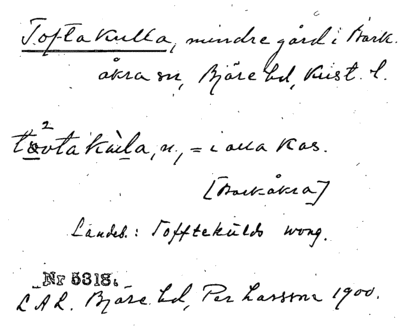 Toftakulla, mindre gård i Bark-
åkra sn, Bjäre hd, Krist. l.
2
tåvtakùla, n, = i alla kas.
[Barkåkra]
Landeb.: Tofftekulds wong.
Nr 5318.
LAL. Bjäre hd, Per Larsson 1900.